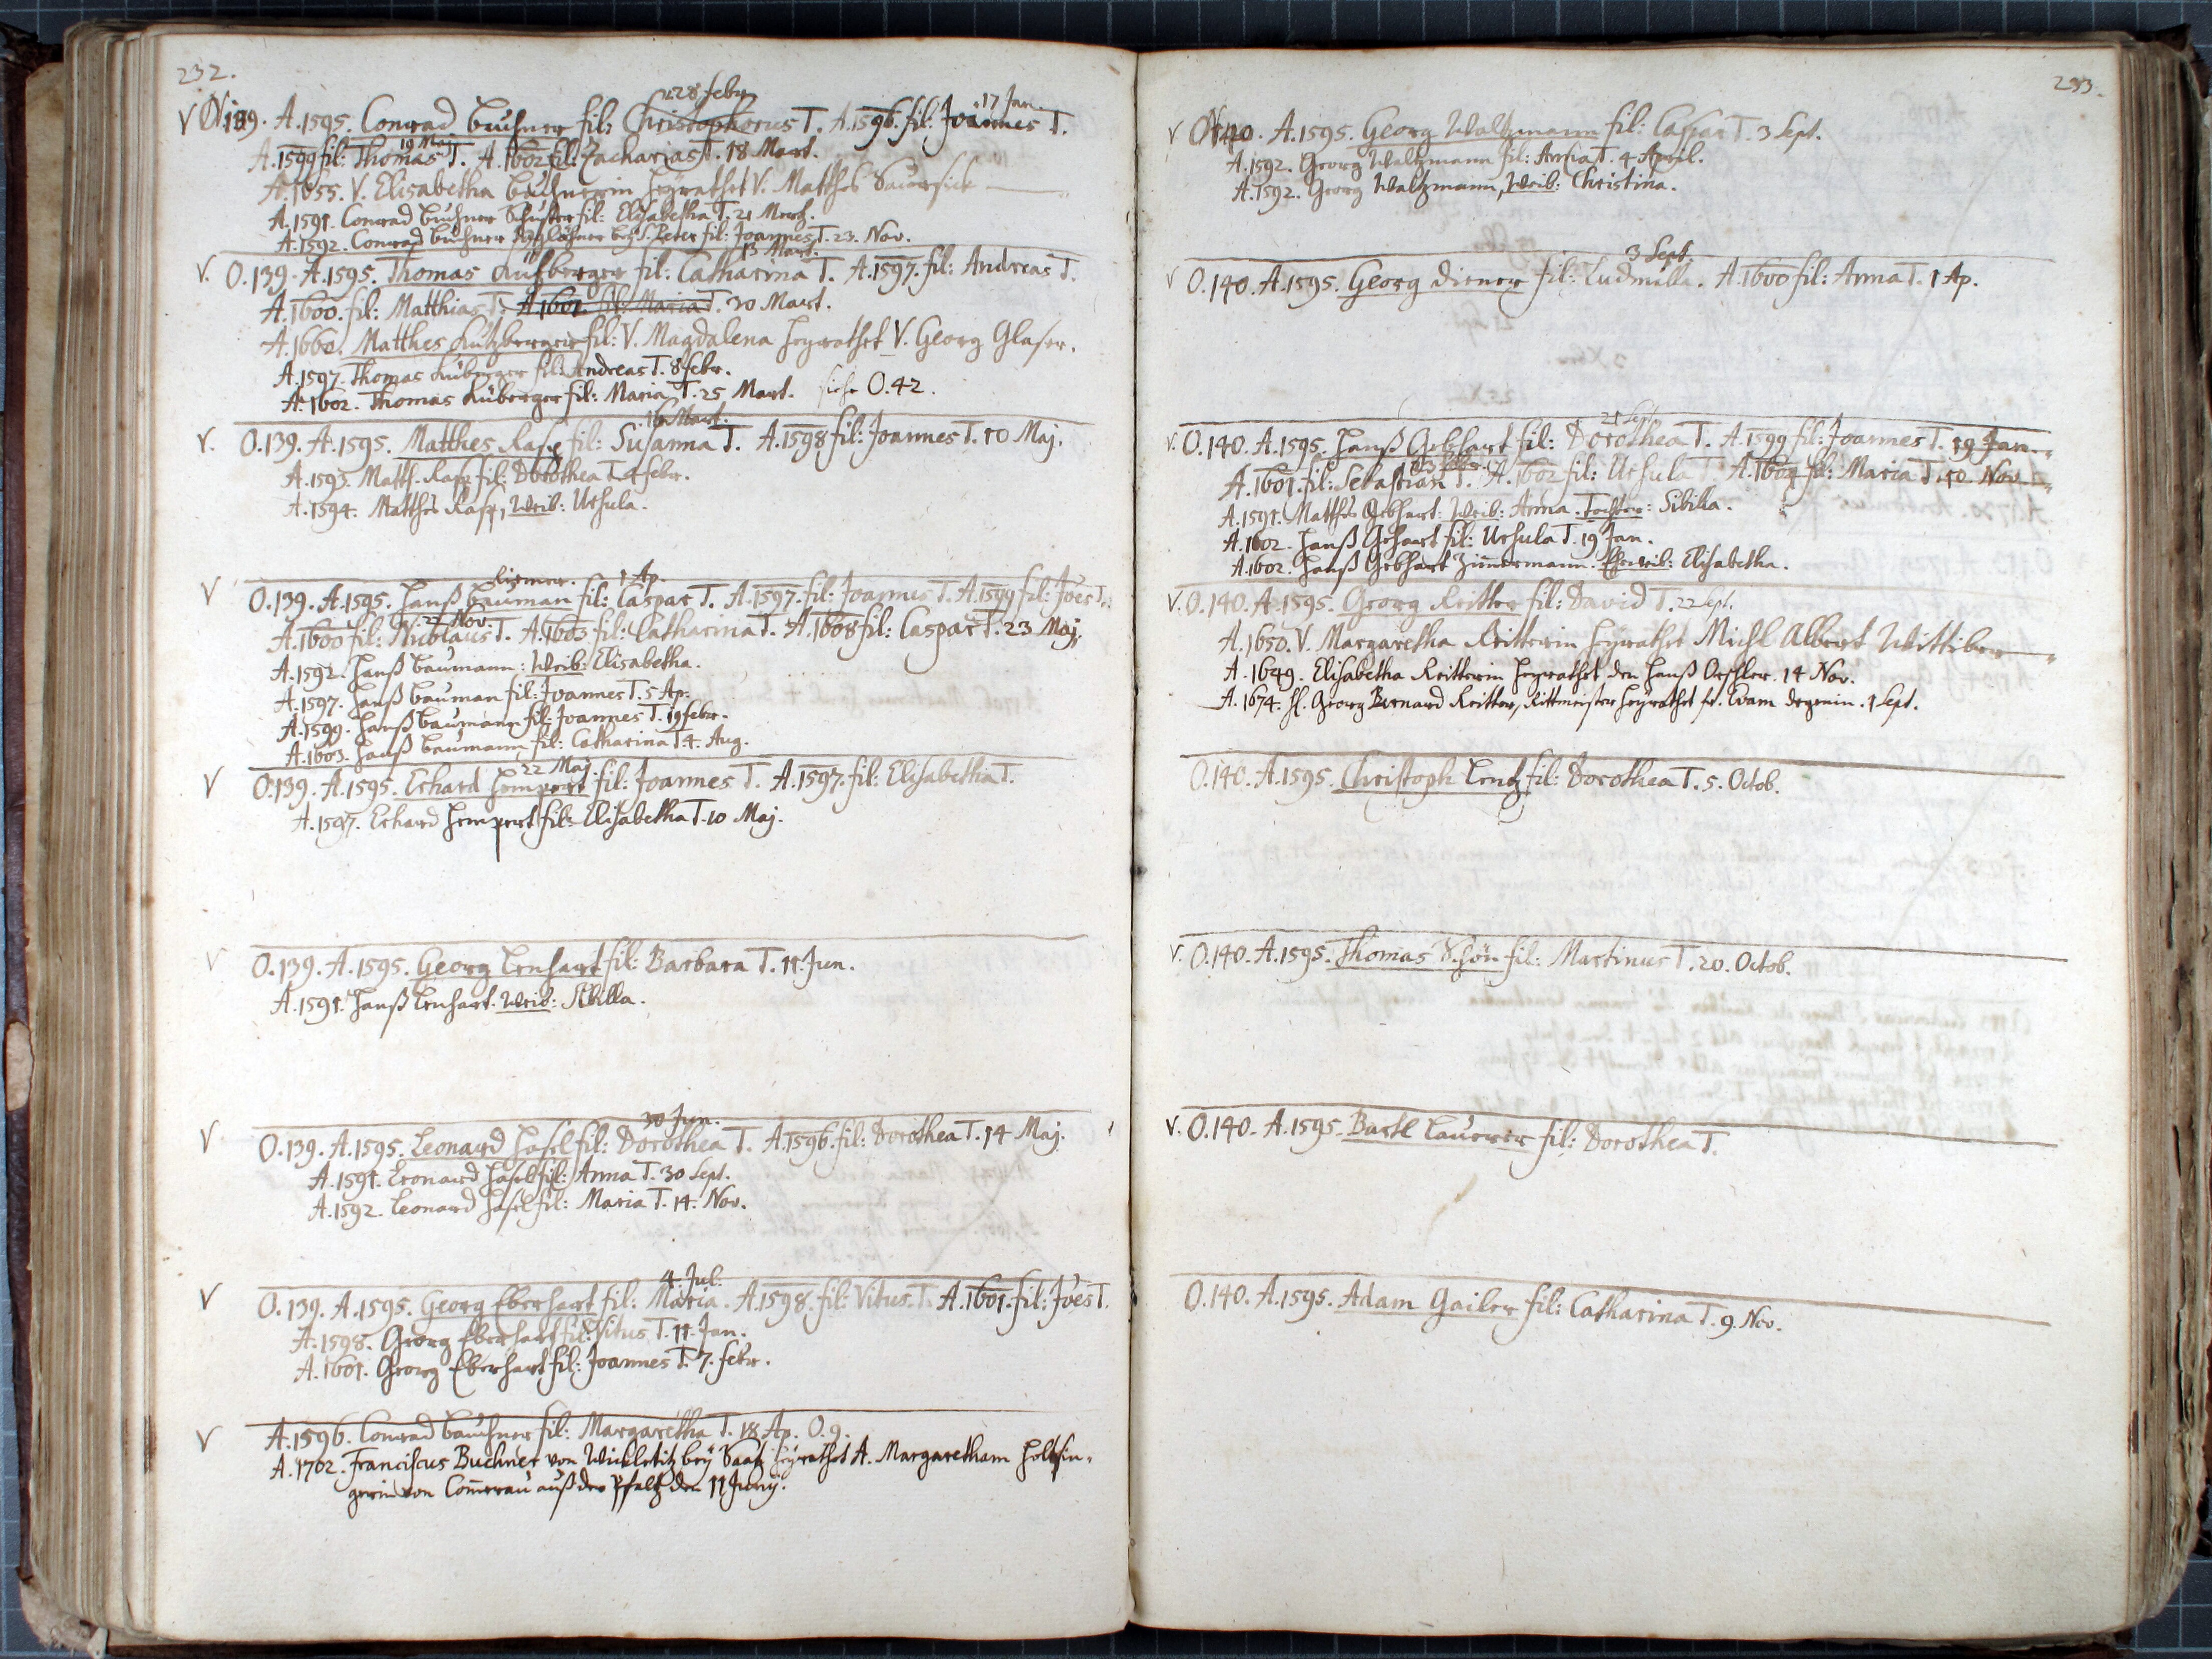 232.
V O.139. A.1595. Conrad Buchner fil: Christophorus T. 28 febr. A.1596. fil: Joannes T. 17 Jan.
A.1599 fil: Thomas T. 19 Maj. A.1602 fil: Zacharias T. 18 Mart.
A.1655. V. Elisabetha Buchnerin heyrathet V. Matthes
A.1591. Conrad Buchner Schuster fil: Elisabetha T. 21 Mertz.
A.1592. Conrad Buchner bey S. Peter fil: Joannes T. 23. Nov.
V. O.139. A.1595. Thomas fil: Catharina T. 13 Mart. A.1597. fil: Andreas T.
A.1600. fil: Matthias T. A.1601. fil: Maria T. 30 Mart.
A.1660. Matthes fil: V. Magdalena heyrathet V. Georg Glaser.
A.1597. Thomas fil: Andreas T. 8 febr.
A.1602. Thomas Küberger fil: Maria T. 25 Mart. siehe O.42.
V. O.139. A.1595. Matthes Rasp fil: Susanna T. 16 Mart. A.1598 fil: Joannes T. 10 Maj.
A.1593. Matth. Rasp fil: Dorothea T. 4 febr.
A.1594. Matthes Rasp, Weib: Ursula.
V O.139. A.1595. Hanß Bauman Riemer. fil: Caspar T. 1 Ap. A.1597. fil: Joannes T. A.1599 fil: Joes T.
A.1600 fil: Nicolaus T. 27 Nov. A.1603 fil: Catharina T. A.1608 fil: Caspar T. 23 Maj.
A.1592. Hanß Baumann: Weib: Elisabetha.
A.1597. Hanß Bauman fil: Joannes T. 5 Ap.
A.1599. Hanß Baumann fil: Joannes T. 19 febr.
A.1603. Hanß Baumann fil: Catharina T. 4. Aug.
V O.139. A.1595. Erhard Hempert fil: Joannes T. 22 Maj. A.1597. fil: Elisabetha T.
A.1597. Erhard Hempert fil: Elisabetha T. 10 Maj.
V O.139. A.1595. Georg Lenhart fil: Barbara T. 11. Jun.
A.1591. Hanß Lenhart. Weib: Sibilla.
V O.139. A.1595. Leonard Hasel fil: Dorothea T. 30 Jun. A.1596. fil: Dorothea T. 14 Maj.
A.1591. Leonard Hasel fil: Anna T. 30 Sept.
A.1592. Leonard Hasel fil: Maria T. 14. Nov.
V O.139. A.1595. Georg Eberhart fil: Maria. 4. Jul. A.1598. fil: Vitus T. A.1601. fil: Joes T.
A.1598. Georg Eberhart fil: Vitus T. 11. Jan.
A.1601. Georg Eberhart fil: Joannes T. 7. febr.
V A.1596. Conrad Bauchner fil: Margaretha T. 18 Ap. O.9.
A.1702. Franciscus Buchner von Wickletitz bey Saatz heyrathet A. Margaretham Holtzin-
gerin von Comerau auß der Pfaltz den 11 Junij.
233.
V O.140. A.1595. Georg Waltzmann fil: Caspar T. 3 Sept.
A.1592. Georg Waltzmann fil: T. 4 April.
A.1592. Georg Waltzmann, Weib: Christina.
V O.140. A.1595. Georg Diener fil: Ludmilla. 3 Sept. A.1600 fil: Anna T. 1 Ap.
V. O.140. A.1595. Hanß Gebhart fil: Dorothea T. 21 Sept. A.1599 fil: Joannes T. 19 Jan.
A.1601. fil: Sebastian T. A.1602 fil: Ursula T. A.1604 fil: Maria T. 10. Nov.
A.1591. Matthes Gebhart: Weib: Anna. Tochter: Sibilla.
A.1602. Hanß Gebhart fil: Ursula T. 19 Jan.
A.1602. Hanß Gebhart Zimmermann. Eheweib: Elisabetha.
V. O.140. A.1595. Georg Reitter fil: David T. 22 Sept.
A.1650. V. Margaretha Reitterin heyrathet Michl Albert Wittiber
A.1649. Elisabetha Reitterin heyrathet den Hanß Oechsler. 14 Nov.
A.1674. H. Georg Bernard Reitter, Rittmeister heyrathet fr. Evam Degenin. 1 Sept.
O.140. A.1595. Christoph Lentz fil: Dorothea T. 5. Octob.
V. O.140. A.1595. Thomas Schön fil: Martinus T. 20. Octob.
V. O.140. A.1595. Bartl Lauerer fil: Dorothea T.
O.140. A.1595. Adam Gailer fil: Catharina T. 9. Nov.